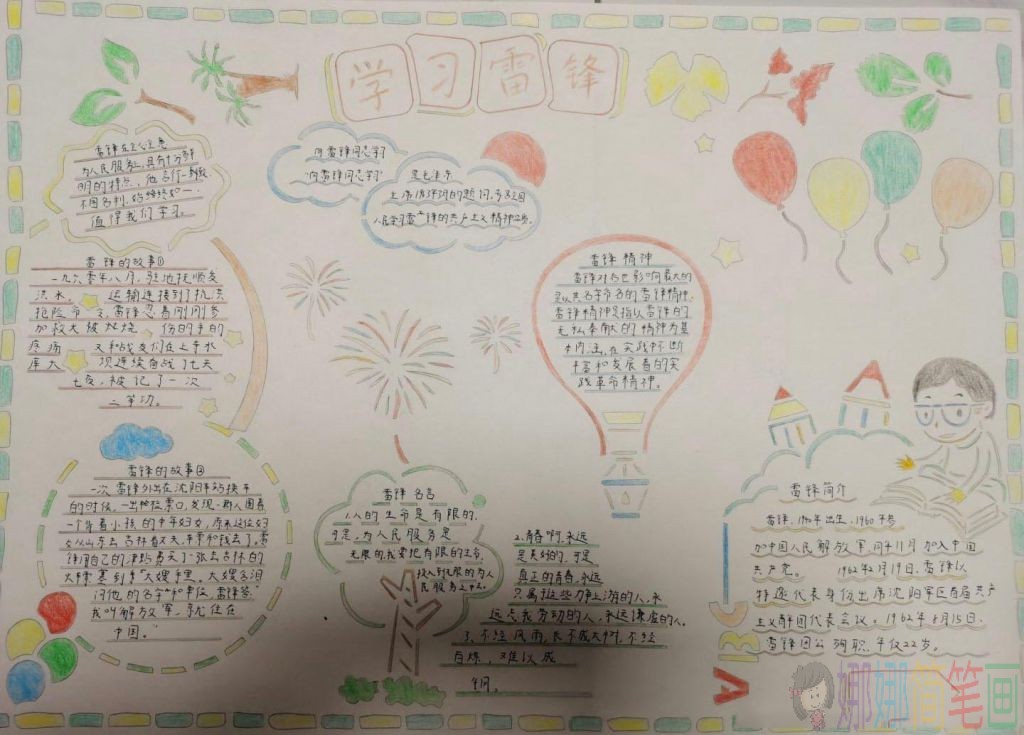 学习雷锋
为人民服务,具有十分鲜
明的特点,他言行一致,
不图名利,始终如一,
值得我们学习。
向雷锋同志学习
"向雷锋同志学习"
是毛主席
人民学习雷锋的共产主义精神
雷锋的故事①
一九六零年八月,驻地抚顺发
洪水, 运输连接到了抗洪
抢险命令,雷锋忍着刚刚参
加救火被烧 伤的手的
疼痛 又和战友们在上寺水
库大 项连续奋战了七天
七夜,被记了一次
二等功。
雷锋精神
雷锋精神是指以雷锋的
无私奉献的精神为基
本内涵,在实践中不断
丰富和发展着的
践革命精神。
雷锋的故事②
一次雷锋外出在沈阳车站换车
的时候,一出检票口,发现一群人围着
一个背着小孩的中年妇女,原来这位妇
女从山东去吉林看丈夫,车票和钱丢了,雷
锋用自己的津贴费买了一张去吉林的
火车票塞到 大嫂手里,大嫂含泪
问他的名字和单位,雷锋答:
我叫解放军,就住在
中国。"
雷锋名言
1.人的生命是有限的,
可是,为人民服务是
无限的,我要把有限的生命,
投入到无限的为人
民服务之中去。
2.青春啊,永远
是美好的,可是
真正的青春,永远
只属于这些力争上游的人,永
远忘我劳动的人,永远谦虚的人。
3.不经风雨,长不成大树,不经
百炼,难以成
钢。
雷锋简介
雷锋,1940年出生,1960年参
加中国人民解放军,同年11月加入中国
共产党。 1962年2月19日,雷锋以
特邀代表身份出席沈阳军区首届共产
主义青年团代表会议。1962年8月15日,
雷锋因公殉职,年仅22岁。
A
B
娜娜简笔画